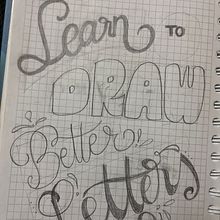 Learn TO
DRAW
Better
Letters